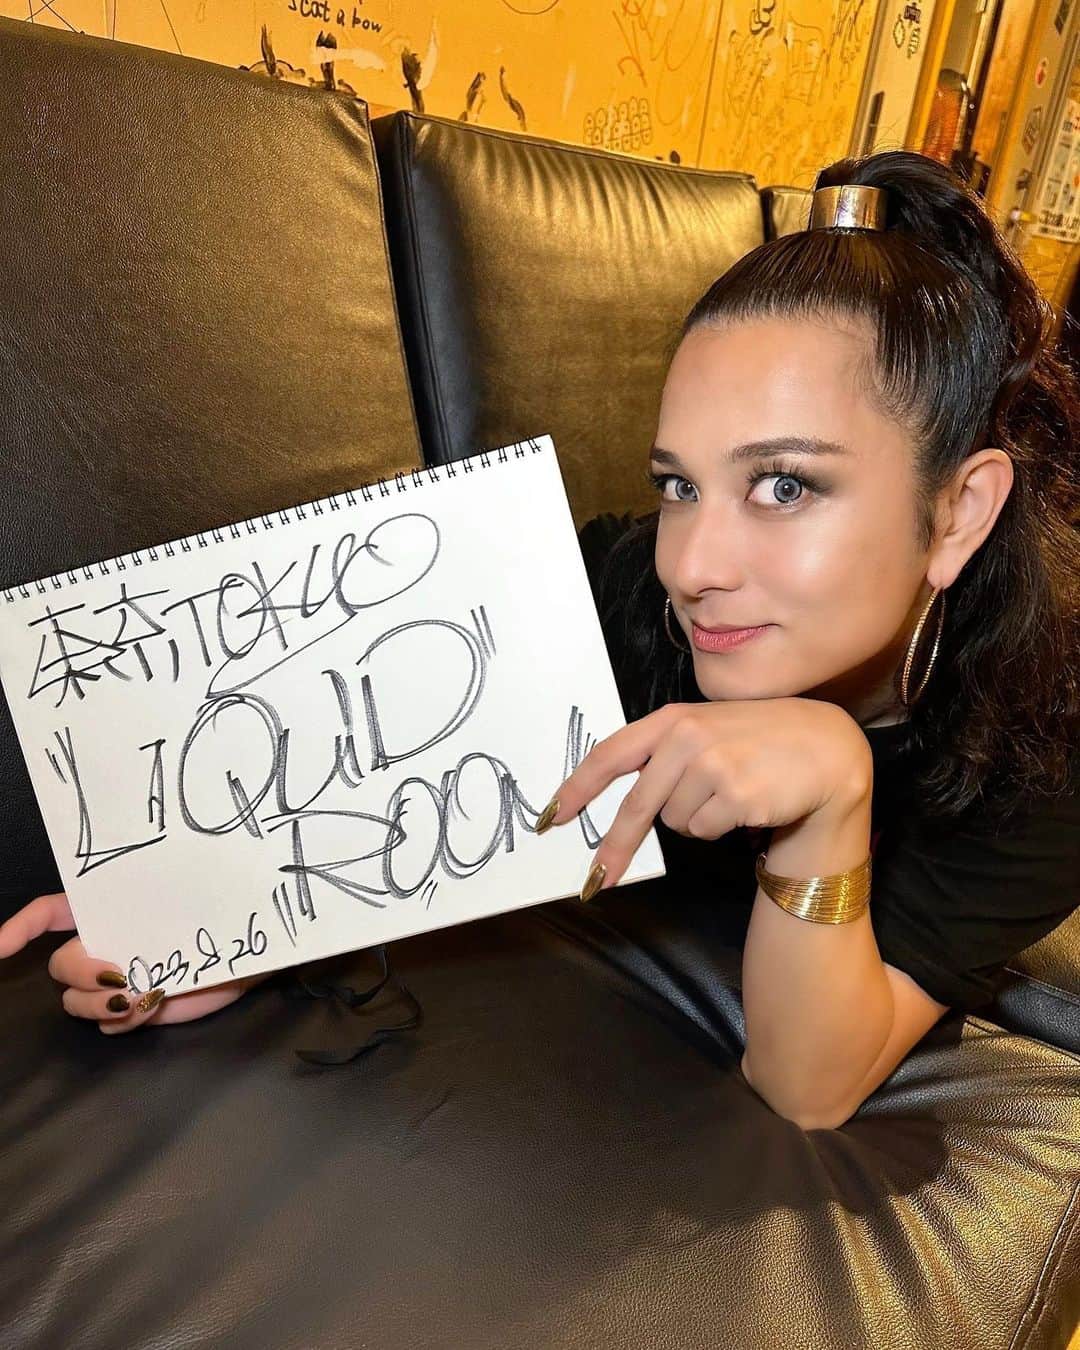 scat a bow
東京, TOKYO
"LIQUID
"ROOM"
023.8.26